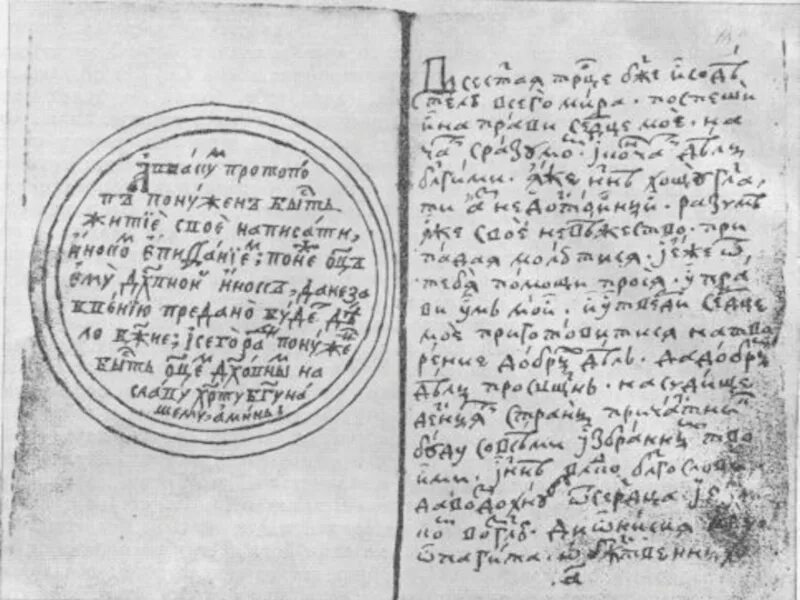 Аввакумъ протопо
пъ понуженъ бысть
житиѐ своѐ написати,
инокомъ епифаниемъ; понеж оц҃ъ
ему дх҃овной инокъ, да не за
бвению предано будетъ дѣ
ло бж҃ие; и сего ради понуже
бысть оц҃емъ дх҃овнымъ на
славу хрс҃ту бг҃у на
шему. аминь
Всес҃тая трц҃е бж҃е и содѣ
телю всего мира. поспеши
и направи сердце моѐ. на
чати с разумомъ. и кончати дѣлы
бл҃гими. яже ннѣ хощу гл҃а
ти азъ недостойный. разумѣ
я же своѐ невѣжество. при
падая молю ти ся. и еже ѿ
тебя помощи прося. упра
ви умъ мой. и утверди сердце
моѐ приготовитися на тво
рение добрыхъ дѣлъ. да добрыми
дѣлы просвѣщенъ. на судище
десныя ти страны причастникъ
буду со всѣми избранными тво
ими. и ннѣ влд҃ко бл҃гослови
да воздохнувъ ѿ сердца. и языко
мъ возглю. дионисия арео
пагита. о бж҃ественныхъ
.а҃.